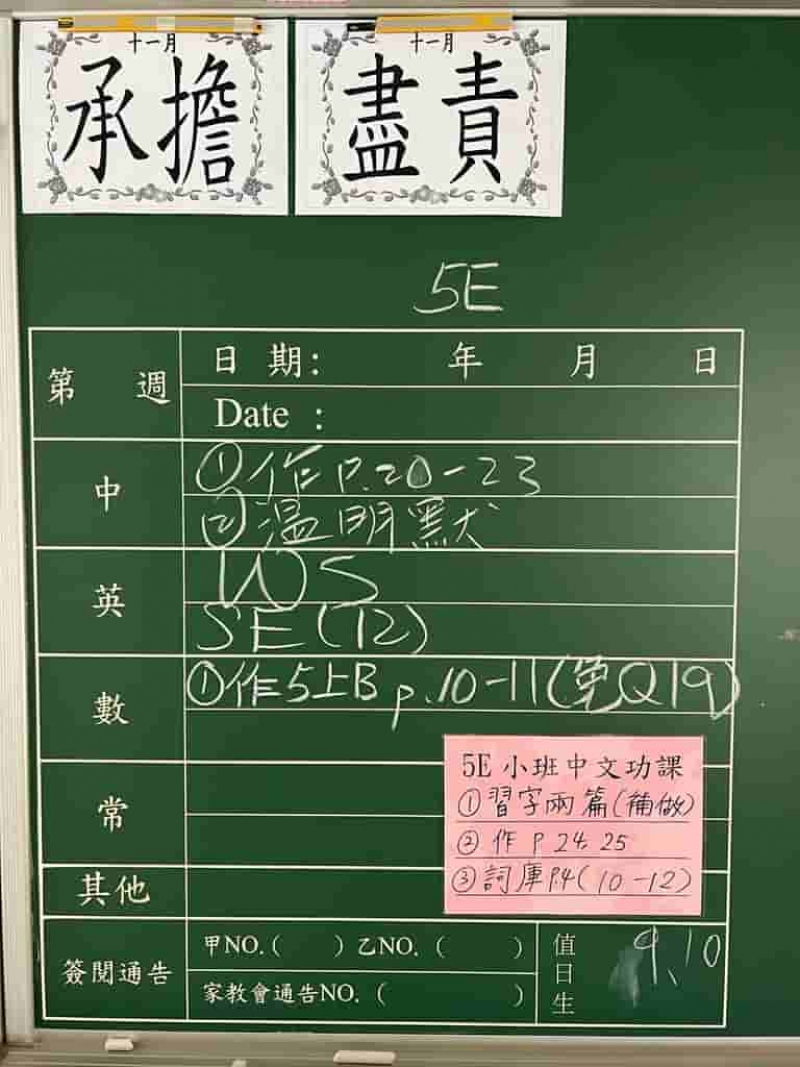 十一月
承擔
十一月
盡責
5E
第 週
日 期： 年 月 日
Date ：
中
①作 P.20-23
②溫明默
英
WS
SE(12)
數
①作5上B p.10-11(第Q19)
常
其他
5E 小班中文功課
①習字兩篇(補做)
②作 P 24. 25
③詞庫P.4(10-12)
簽閱通告
甲NO.( ) 乙NO.( )
家教會通告NO.( )
值日生
9、10